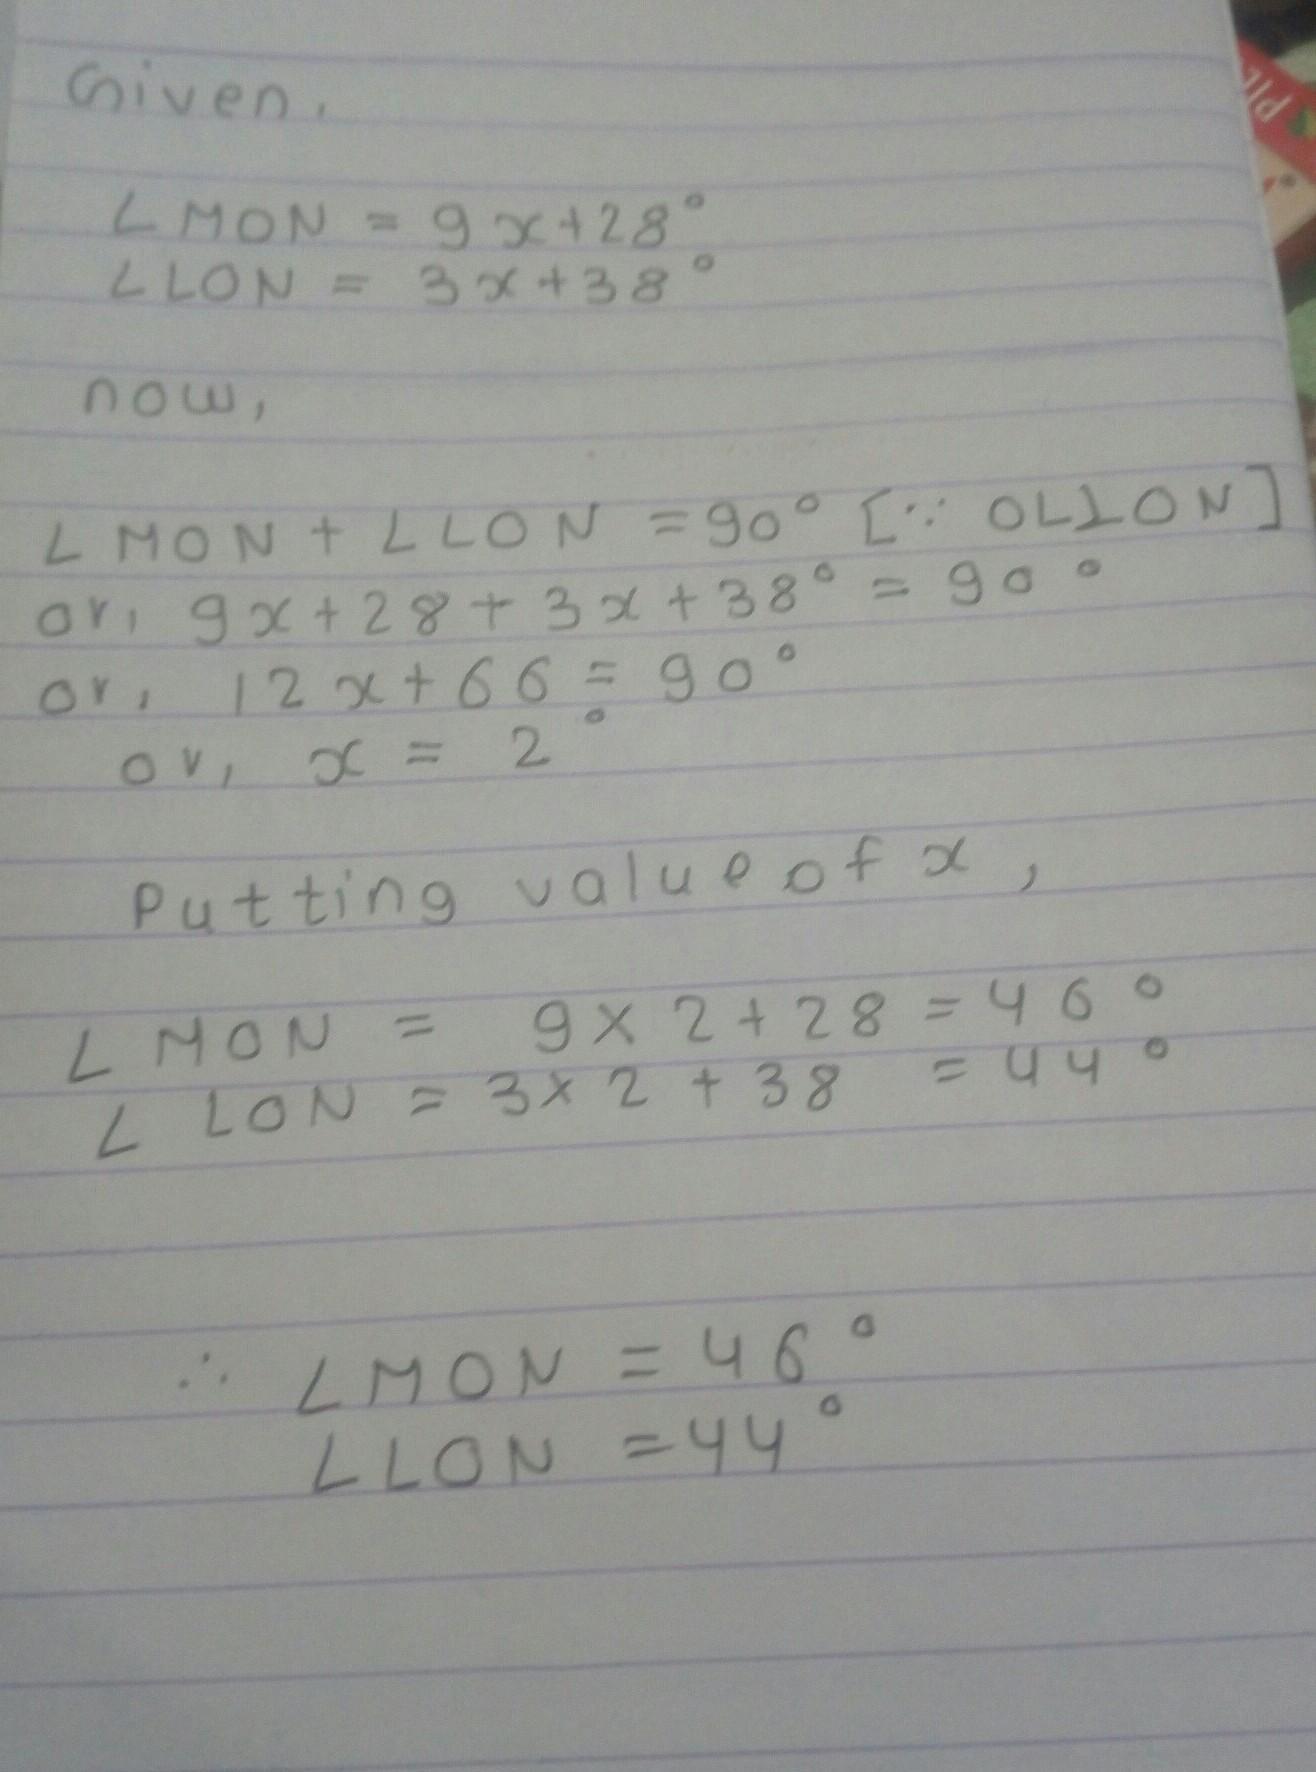 Given,
∠MON = 9x+28°
∠LON = 3x+38°
now,
∠MON + ∠LON = 90° [∵ OL⊥ON]
or, 9x+28+3x+38° = 90°
or, 12x+66 = 90°
or, x = 2°
Putting value of x,
∠MON = 9×2+28 = 46°
∠LON = 3×2+38 = 44°
∴ ∠MON = 46°
∠LON = 44°